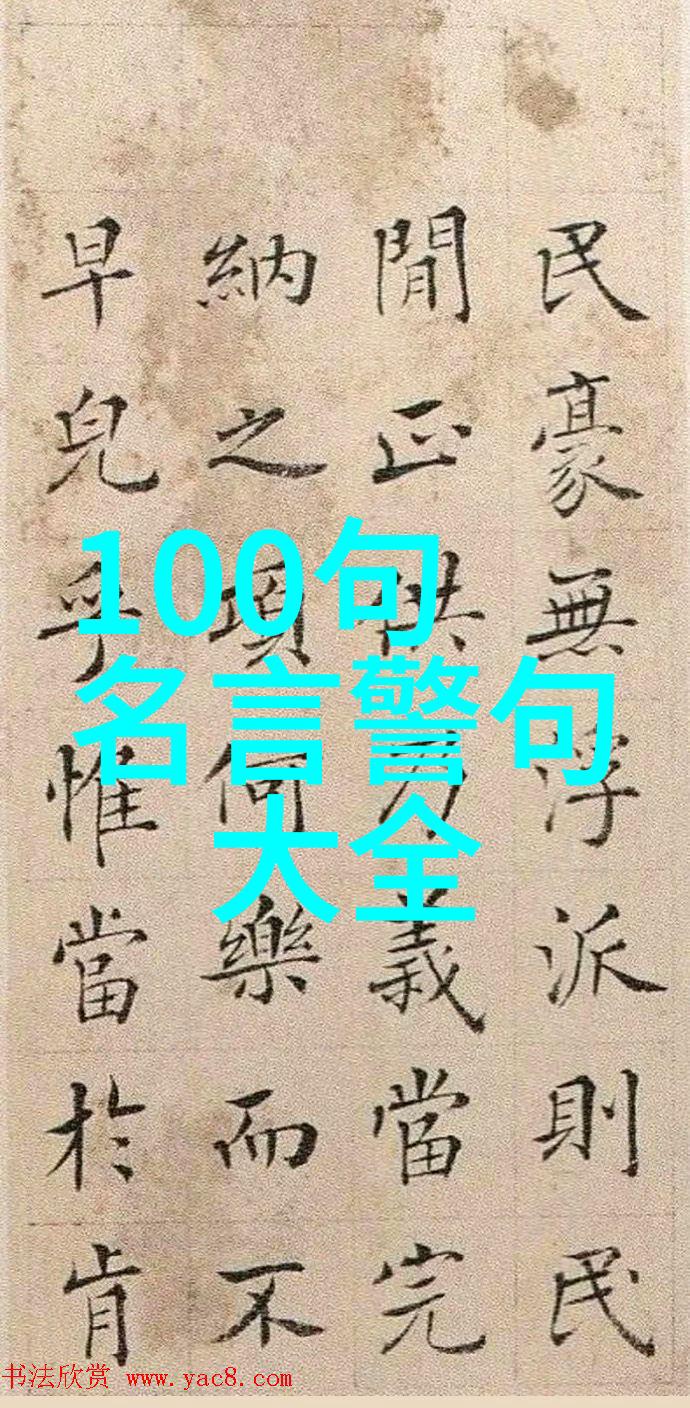 民豪無浮派則民
閒正供乃義當完
納之項何樂而不
早兒乎惟當於肯
100句
名言警句
大全
书法欣赏 www.yac8.com